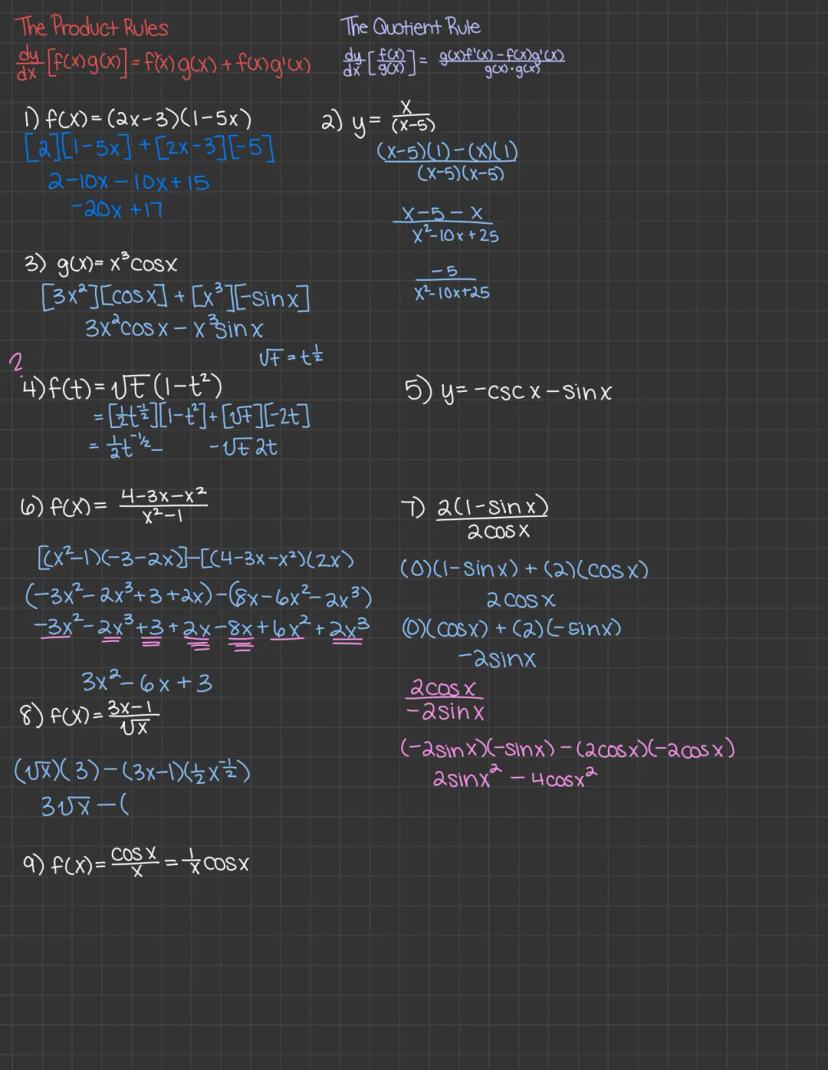 The Product Rules
dy/dx [f(x)g(x)] = f'(x)g(x) + f(x)g'(x)
The Quotient Rule
dy/dx [f(x)/g(x)] = g(x)f'(x) - f(x)g'(x) / g(x)·g(x)
1) f(x) = (2x-3)(1-5x)
[2][1-5x] + [2x-3][-5]
2-10x-10x+15
-20x+17
2) y = x/(x-5)
(x-5)(1)-(x)(1) / (x-5)(x-5)
x-5-x / x²-10x+25
-5 / x²-10x+25
3) g(x) = x³cosx
[3x²][cosx] + [x³][-sinx]
3x²cosx - x³sinx
√t = t^½
?
4) f(t) = √t (1-t²)
= [½t^-½][1-t²] + [√t][-2t]
= ½t^-½ - -√t 2t
5) y = -cscx-sinx
6) f(x) = 4-3x-x² / x²-1
[(x²-1)(-3-2x)]-[(4-3x-x²)(2x)
(-3x²-2x³+3+2x)-(8x-6x²-2x³)
-3x²-2x³+3+2x-8x+6x²+2x³
3x²-6x+3
7) 2(1-sinx) / 2cosx
(0)(1-sinx) + (2)(cosx)
2cosx
(0)(cosx) + (2)(-sinx)
-2sinx
2cosx / -2sinx
(-2sinx)(-sinx) - (2cosx)(-2cosx)
2sinx² - 4cosx²
8) f(x) = 3x-1 / √x
(√x)(3)-(3x-1)(½x^-½)
3√x - (
9) f(x) = cosx/x = 1/x cosx